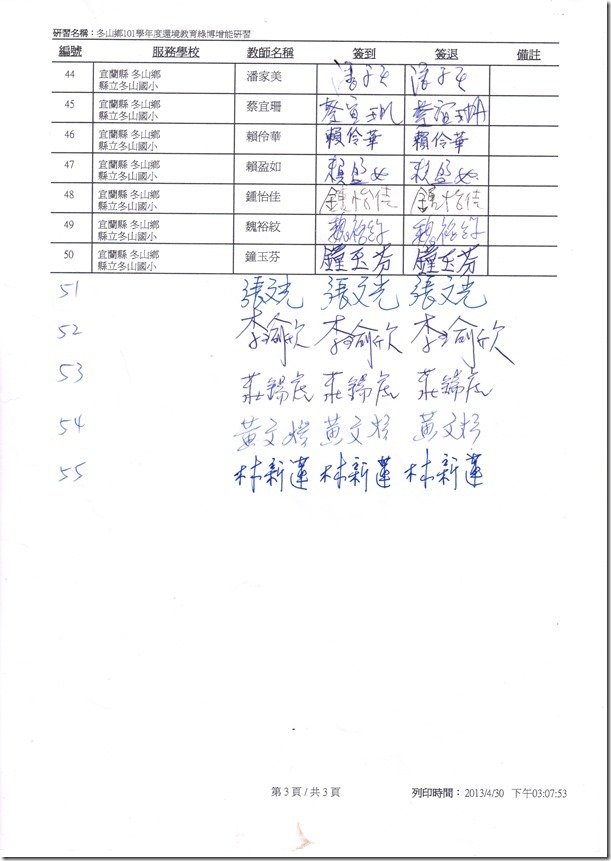 研習名稱：冬山鄉101學年度環境教育綠博增能研習
編號 服務學校 教師名稱 簽到 簽退 備註
44 宜蘭縣 冬山鄉 潘家美
縣立冬山國小
45 宜蘭縣 冬山鄉 蔡宜珊 蔡宜珊 蔡宜珊
縣立冬山國小
46 宜蘭縣 冬山鄉 賴伶華 賴伶華 賴伶華
縣立冬山國小
47 宜蘭縣 冬山鄉 賴盈如 賴盈如 賴盈如
縣立冬山國小
48 宜蘭縣 冬山鄉 鍾怡佳 鍾怡佳 鍾怡佳
縣立冬山國小
49 宜蘭縣 冬山鄉 魏裕紋 魏裕紋 魏裕紋
縣立冬山國小
50 宜蘭縣 冬山鄉 鐘玉芬 鐘玉芬 鐘玉芬
縣立冬山國小
51 張文光 張文光 張文光
52 李俞欣 李俞欣 李俞欣
53
54 黃文 黃文 黃文
55 林新蓮 林新蓮 林新蓮
第 3 頁 / 共 3 頁 列印時間：2013/4/30 下午03:07:53